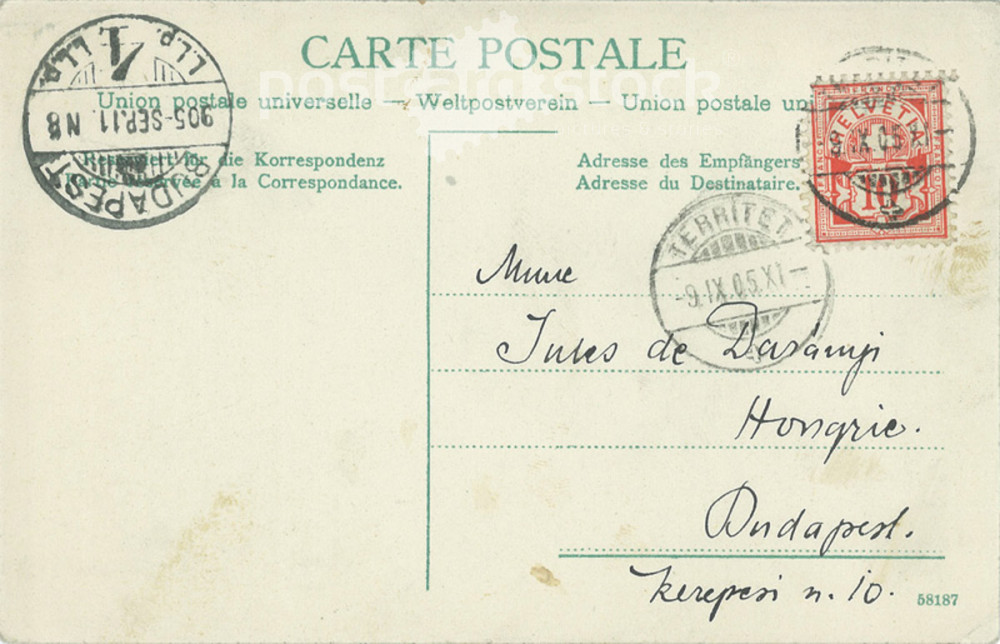 CARTE POSTALE
Union postale universelle — Weltpostverein — Union postale un
für die Korrespondenz
à la Correspondance.
Adresse des Empfängers
Adresse du Destinataire.
BUDAPEST
905-SEP.11 N8
HELVETIA
10
IX.05
TERRITET
-9.IX.05.XI-
Mme
Jules de
Hongrie.
Budapest.
Kerepesi u. 10.
58187